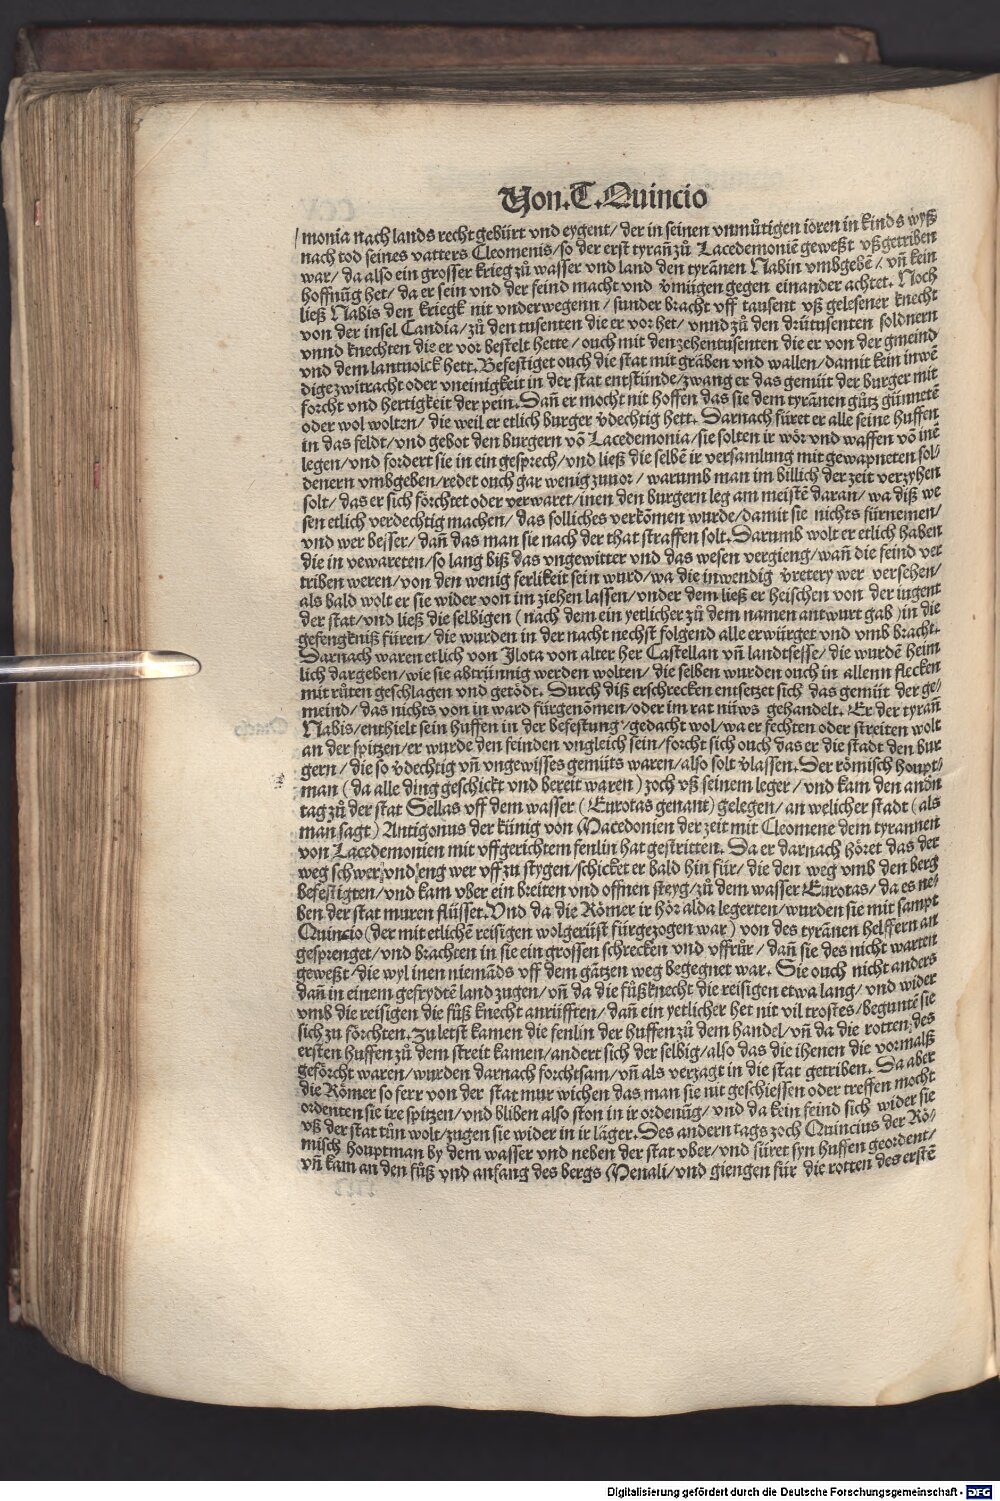 Von.T.Quincio
monia nach lands recht gebürt vnd eygent/ der in seinen vnmůtigen ioren in kinds wyß
nach tod seines vatters Cleomenis/so der erst tyrañ zů Lacedemoniē geweßt vß getriben
war/ da also ein grosser krieg zů wasser vnd land den tyrānen Nabin vmbgebē/ vñ kein
hoffnūg het/ da er sein vnd der feind macht vnd v̄mügen gegen einander achtet. Noch
ließ Nabis den kriegk nit vnderwegenn/ sunder bracht vff tausent vß gelesener knecht
von der insel Candia/ zů den tusenten die er vor het/ vnnd zů den drütusenten soldnern
vnnd knechten die er vor bestelt hette/ ouch mit den zehentusenten die er von der gmeind
vnd dem lantuolck hett. Befestiget ouch die stat mit grāben vnd wallen/damit kein inwē
dige zwitracht oder vneinigkeit in der stat entstünde/zwang er das gemüt der burger mit
forcht vnd hertigkeit der pein. Dañ er mocht nit hoffen das sie dem tyrānen gůtz günnetē
oder wol wolten/ die weil er etlich burger v̄dechtig hett. Darnach füret er alle seine huffen
in das feldt/vnd gebot den burgern vō Lacedemonia/sie solten ir wör vnd waffen vō inē
legen/vnd fordert sie in ein gesprech/vnd ließ die selbē ir versamlung mit gewapneten sol/
denern vmbgeben/redet ouch gar wenig zuuor/ warumb man im billich der zeit verzyhen
solt/ das er sich förchtet oder verwaret/inen den burgern leg am meistē daran/ wa diß we
sen etlich verdechtig machen/ das solliches verkōmen wurde/damit sie nichts fürnemen/
vnd wer besser/ dañ das man sie nach der that straffen solt. Darumb wolt er etlich haben
die in vewareten/so lang biß das vngewitter vnd das wesen vergieng/wañ die feind ver
triben weren/von den wenig ferlikeit sein wurd/wa die inwendig v̄retery wer versehen/
als bald wolt er sie wider von im ziehen lassen/ vnder dem ließ er heischen von der iugent
der stat/vnd ließ die selbigen (nach dem ein yetlicher zů dem namen antwurt gab) in die
gefengkniß füren/ die wurden in der nacht nechst folgend alle erwürget vnd vmb bracht.
Darnach waren etlich von Ilota von alter her Castellan vñ landtsesse/ die wurdē heim
lich dargeben/wie sie abtrünnig werden wolten/ die selben wurden ouch in allenn flecken
mit růten geschlagen vnd getödt. Durch diß erschrecken entsetzet sich das gemüt der ge/
meind/das nichts von in ward fürgenōmen/oder im rat nüws gehandelt. Er der tyrañ
Nabis/enthielt sein huffen in der befestung/gedacht wol/wa er fechten oder streiten wolt
an der spitzen/er wurde den feinden vngleich sein/forcht sich ouch das er die stadt den bur
gern/ die so v̄dechtig vñ vngewisses gemüts waren/also solt v̄lassen. Der römisch houpt/
man (da alle ding geschickt vnd bereit waren) zoch vß seinem leger/ vnd kam den andn
tag zů der stat Sellas vff dem wasser (Eurotas genant) gelegen/ an welicher stadt (als
man sagt) Antigonus der künig von Macedonien der zeit mit Cleomene dem tyrannen
von Lacedemonien mit vffgerichtem fenlin hat gestritten. Da er darnach höret das der
weg schwer vnd eng wer vff zu stygen/schicket er bald hin für/ die den weg vmb den berg
befestigten/vnd kam vber ein breiten vnd offnen steyg/zů dem wasser Eurotas/ da es ne/
ben der stat muren flüsset. Vnd da die Römer ir hör alda legerten/wurden sie mit sampt
Quincio(der mit etlichē reisigen wolgerüst fürgezogen war) von des tyrānen helffern an
gesprenget/vnd brachten in sie ein grossen schrecken vnd vffrůr/ dañ sie des nicht warten
geweßt/die wyl inen niemāds vff dem gātzen weg begegnet war. Sie ouch nicht anders
dañ in einem gefrydtē land zugen/ vñ da die fůßknecht die reisigen etwa lang/ vnd wider
vmb die reisigen die fůß knecht anrüfften/dañ ein yetlicher het nit vil trostes/beguntē sie
sich zu förchten. Zu letst kamen die fenlin der huffen zů dem handel/vñ da die rotten des
ersten huffen zů dem streit kamen/andert sich der selbig/also das die ihenen die vormalß
geförcht waren/wurden darnach forchtsam/vñ als verzagt in die stat getriben. Da aber
die Römer so ferr von der stat mur wichen das man sie nit geschiessen oder treffen mocht
ordenten sie ire spitzen/vnd bliben also ston in ir ordenūg/ vnd da kein feind sich wider sie
vß der stat tůn wolt/zugen sie wider in ir läger. Des andern tags zoch Quincius der Rö/
misch houptman by dem wasser vnd neben der stat vber/vnd füret syn huffen geordent/
vñ kam an den fůß vnd anfang des bergs Menali/vnd giengen für die rotten des erstē
Digitalisierung gefördert durch die Deutsche Forschungsgemeinschaft - DFG